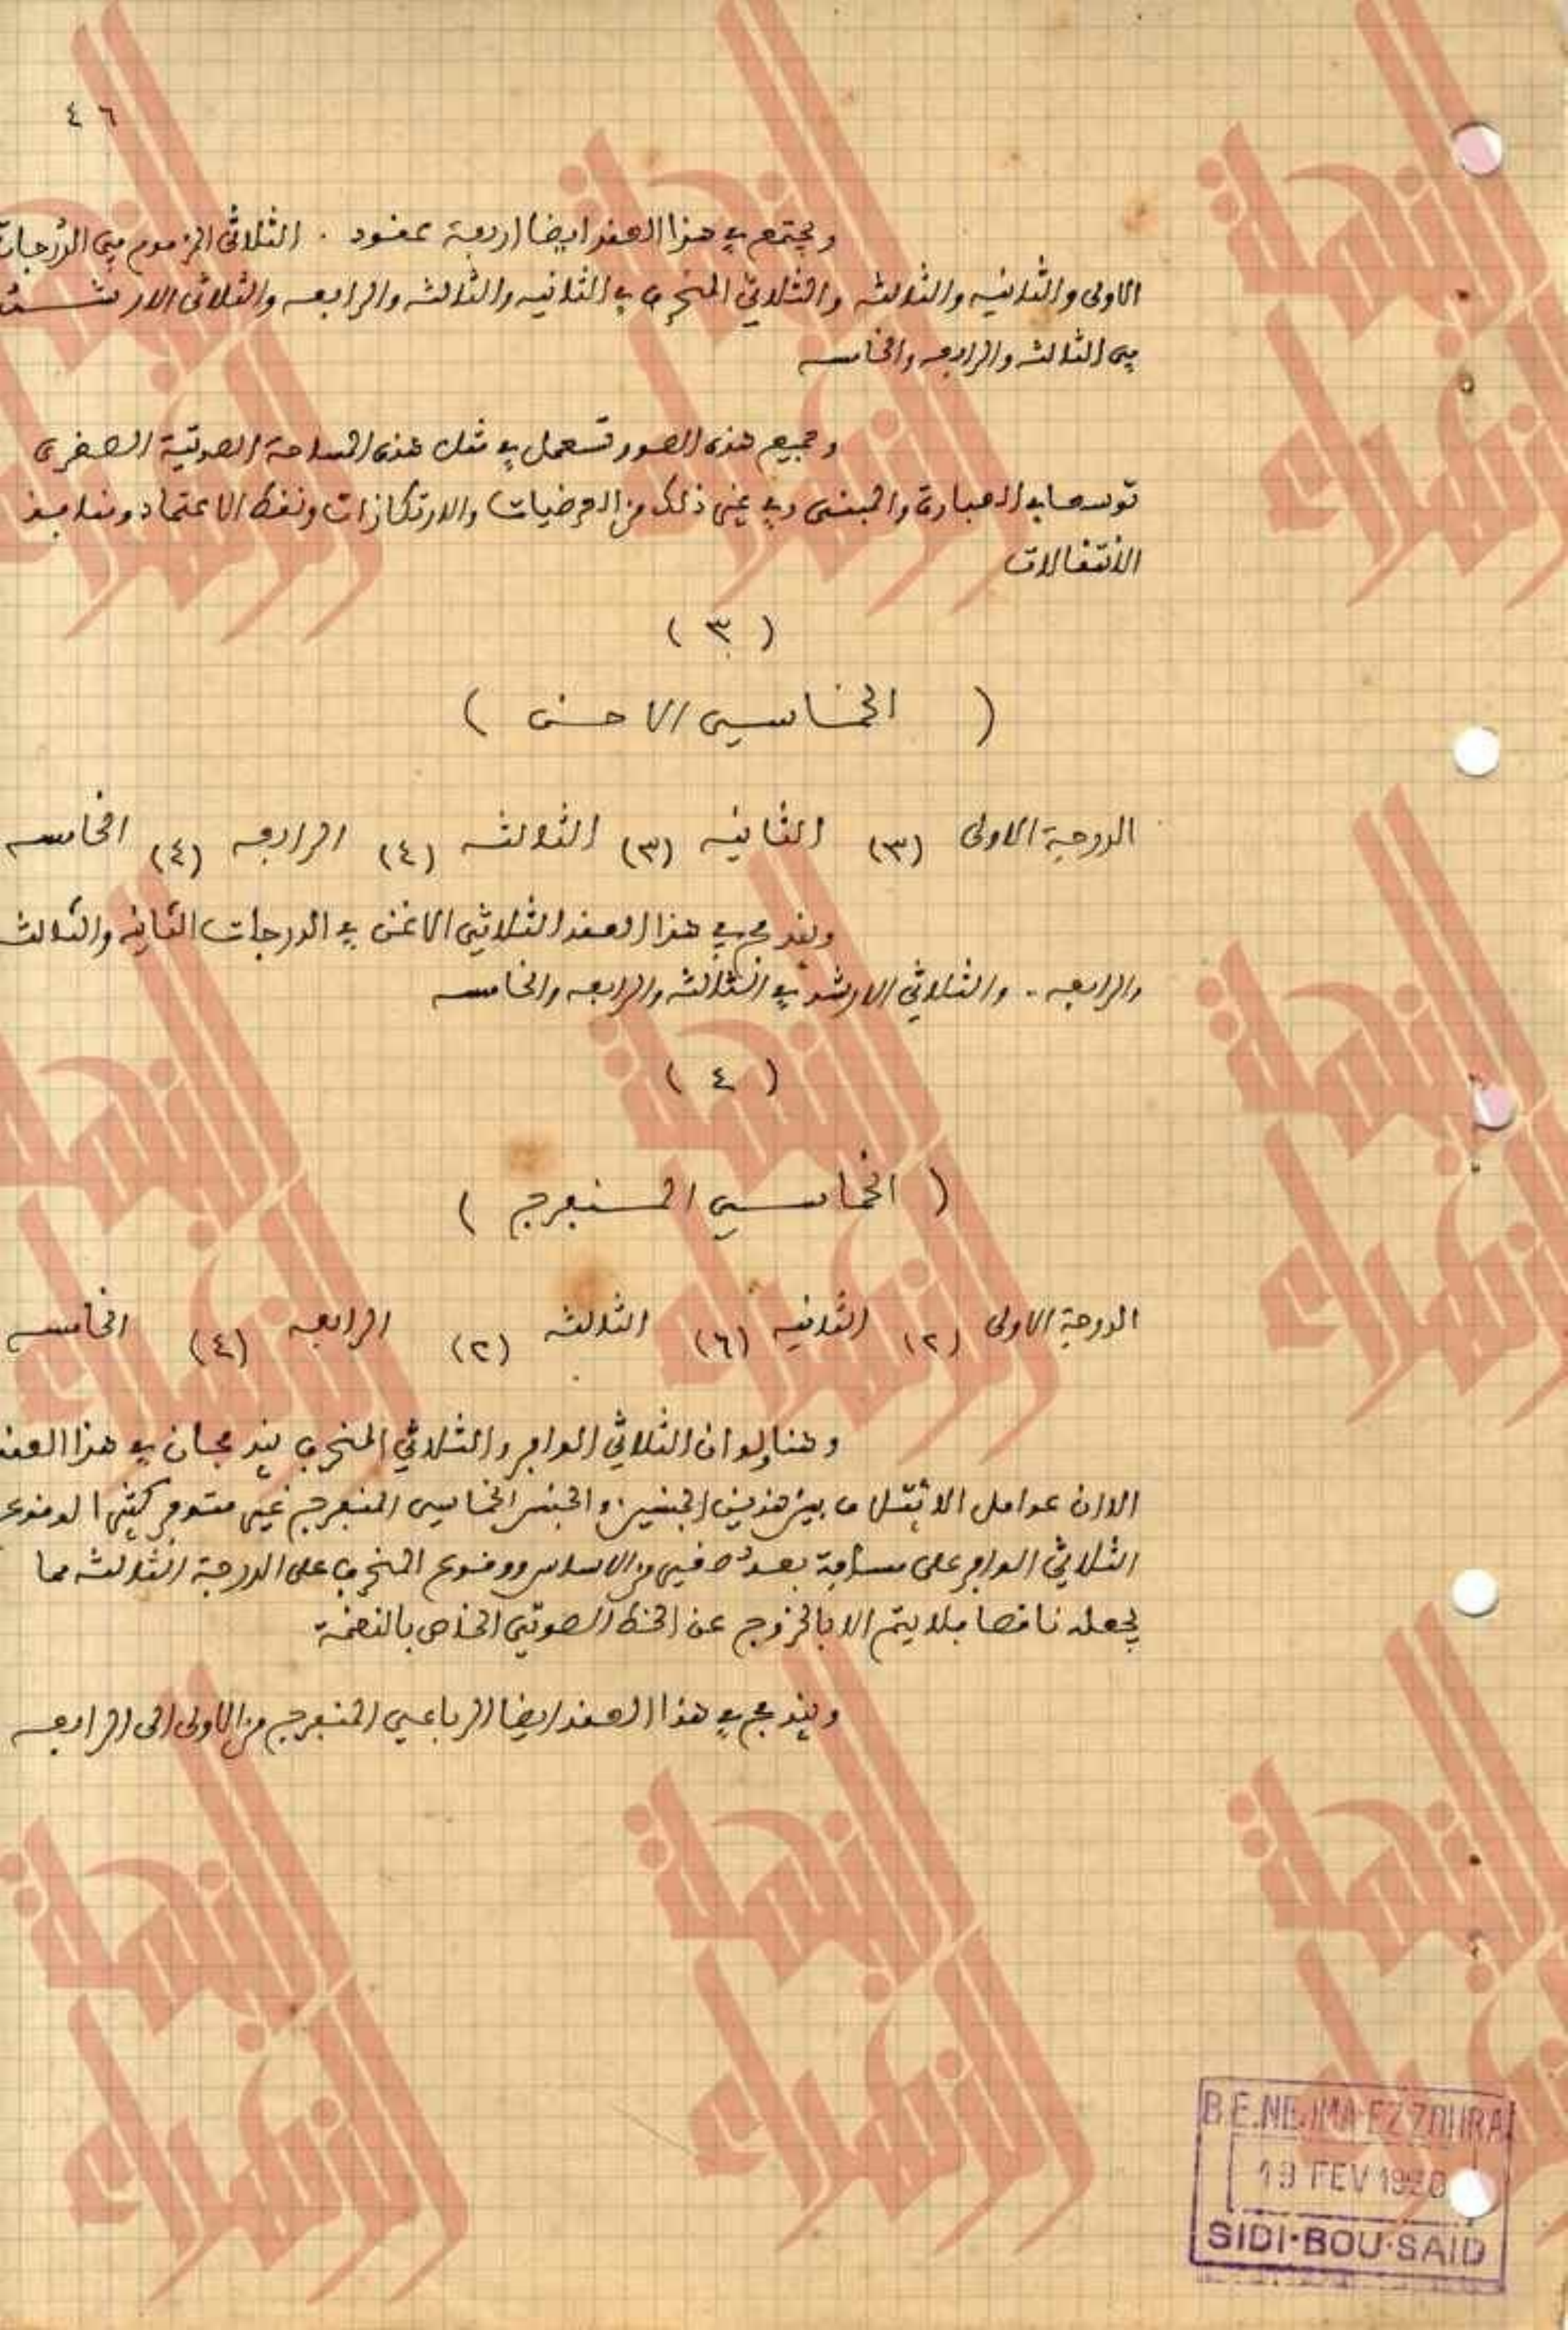 ٤٦
ويجتمع في هذا العقد ايضا اربعة عقود . الثلاثي المزموم في الدرجات
الاولى والثانيه والثالثه والثلاثي المنحرف في الثانيه والثالثه والرابعه والثلاثي الارشد
في الثالثه والرابعه والخامسه
وجميع هذه الصور تستعمل في مثل هذه المساحة الصوتية الصغرى
توسعا في العبارة والمبنى وفي غير ذلك من العرضيات والارتكازات ونقط الاعتماد ومنافذ
الانتقالات
( ٣ )
( الخماسي الاحسن )
الدرجة الاولى (٣) الثانيه (٣) الثالثه (٤) الرابعه (٤) الخامسه
ويندمج في هذا العقد الثلاثي الاغن في الدرجات الثانيه والثالثه
والرابعه . والثلاثي الارشد في الثالثه والرابعه والخامسه
( ٤ )
( الخماسي المنفرج )
الدرجة الاولى (٢) الثانيه (٦) الثالثه (٢) الرابعه (٤) الخامسه
وهنا ولو ان الثلاثي الوافر والثلاثي المنحرف يندمجان في هذا العقد
الا ان عوامل الائتلاف بين هذين الجنسين والجنس الخماسي المنفرج غير متوفر كثيرا لوقوع
الثلاثي الوافر على مسافة بعد صغير من الاساس ووقوع المنحرف على الدرجة الثالثه مما
يجعله ناقصا فلا يتم الا بالخروج عن الخط الصوتي الخاص بالنغمة
ويندمج في هذا العقد ايضا الرباعي المنفرج من الاولى الى الرابعه
النجمة الزهراء
B.E. NEJMA EZZOHRA
SIDI-BOU-SAID